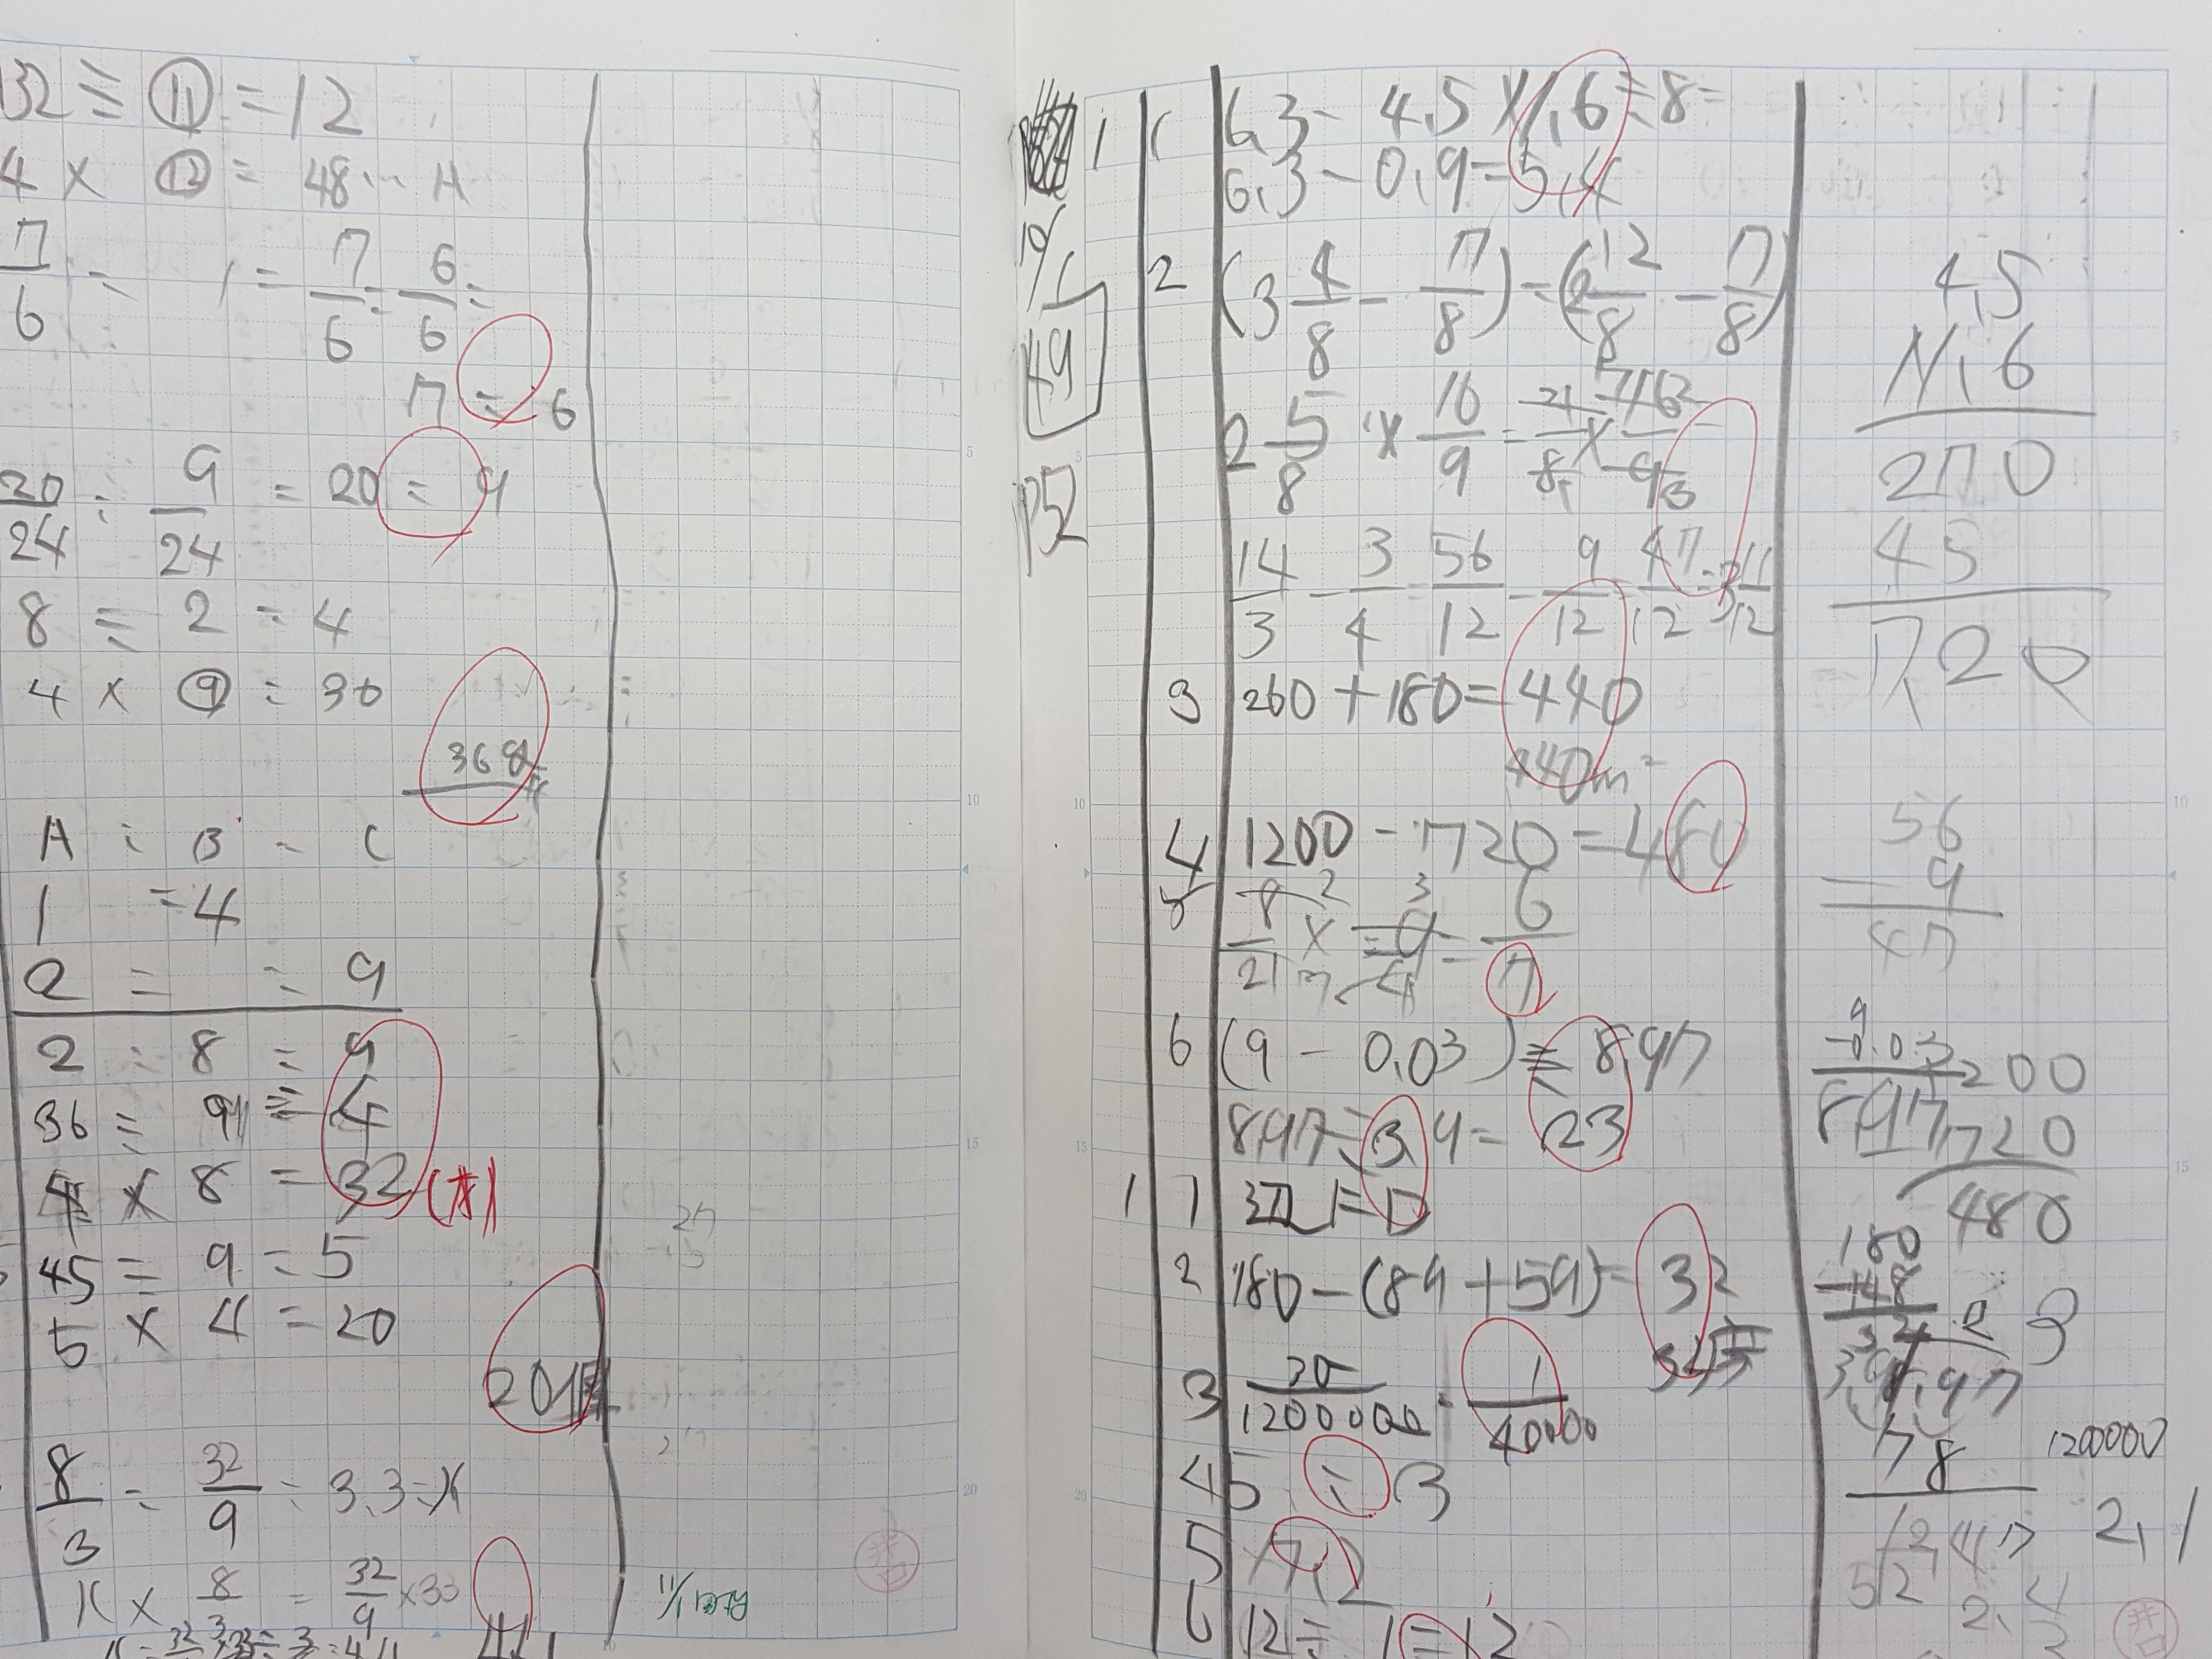 32 ÷ ⑪ = 12
4 × ⑫ = 48
7/6 : 1 = 7/6 : 6/6 =
7 : 6
20/24 : 9/24 = 20 : 9
8 ÷ 2 = 4
4 × ⑨ = 36
A : B : C
1 : 4
2 : : 9
2 : 8 : 9
36 ÷ 9 = 4
4 × 8 = 32
45 ÷ 9 = 5
5 × 4 = 20
8/3 : 32/9 = 3.3 : x
x × 8/3 = 32/9 × 33
11/1
10/1
49
P52
1 1 6.3 - 4.5 × 1.6 ÷ 8 =
6.3 - 0.9 = 5.4
2 (3 4/8 - 7/8) = (2 12/8 - 7/8)
2 5/8 × 16/9 = 21/8 × 16/9
14/3 - 3/4 = 56/12 - 9/12 = 47/12 = 3 11/12
3 260 + 180 = 440
440m²
4 1200 - 720 = 480
5 8/21 × 9/4 = 6/7
6 (9 - 0.03) = 8.97
8.97 ÷ 3.9 = 23
1 1
2 180 - (89 + 59) = 32
3 30/1200000 = 1/40000
4 5 : 3
5 7.2
6 12 ÷ 1 = 12
4.5
×1.6
270
45
7.20
56
- 9
47
9
-0.03
8.97
1200
720
480
180
-148
32
2 3
3.9 8.97
78
1200000
2.1
井口
井口